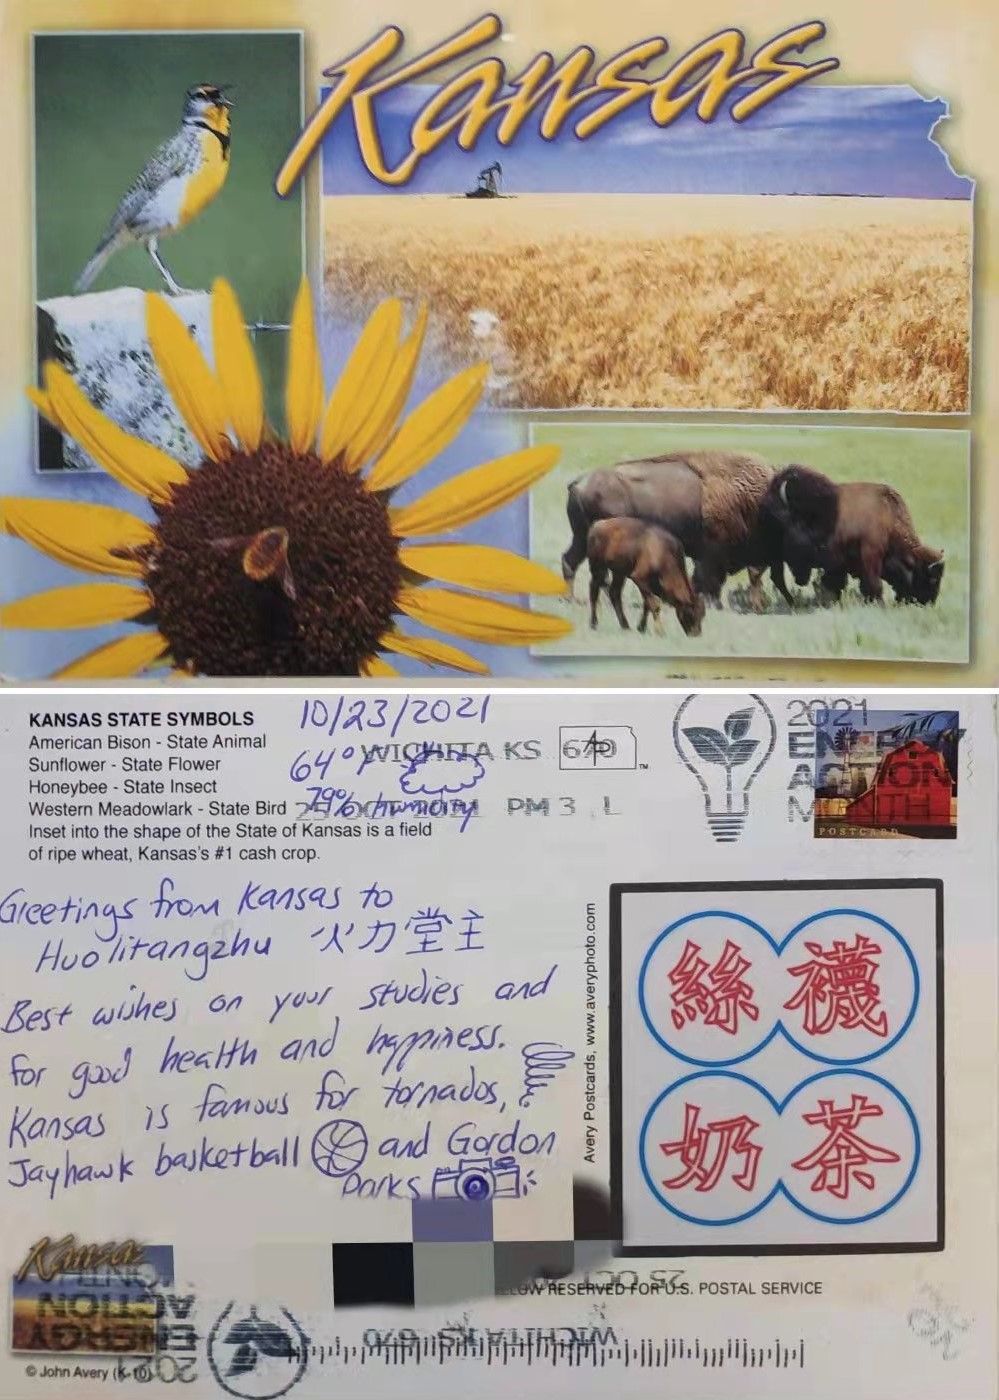 Kansas
KANSAS STATE SYMBOLS
American Bison - State Animal
Sunflower - State Flower
Honeybee - State Insect
Western Meadowlark - State Bird
Inset into the shape of the State of Kansas is a field
of ripe wheat, Kansas's #1 cash crop.
10/23/2021
64°F
79% humidity
WICHITA KS 670
25 OCT 2021 PM 3 L
2021
ENERGY
ACTION
MONTH
POSTCARD
Greetings from Kansas to
Huolitangzhu 火力堂主
Best wishes on your studies and
for good health and happiness.
Kansas is famous for tornados,
Jayhawk basketball and Gordon
Parks
Avery Postcards, www.averyphoto.com
絲襪
奶茶
25 OCT
LOW RESERVED FOR U.S. POSTAL SERVICE
Kansas
MONTH
ACTION
ENERGY
2021
WICHITA KS 670
© John Avery (K-10)